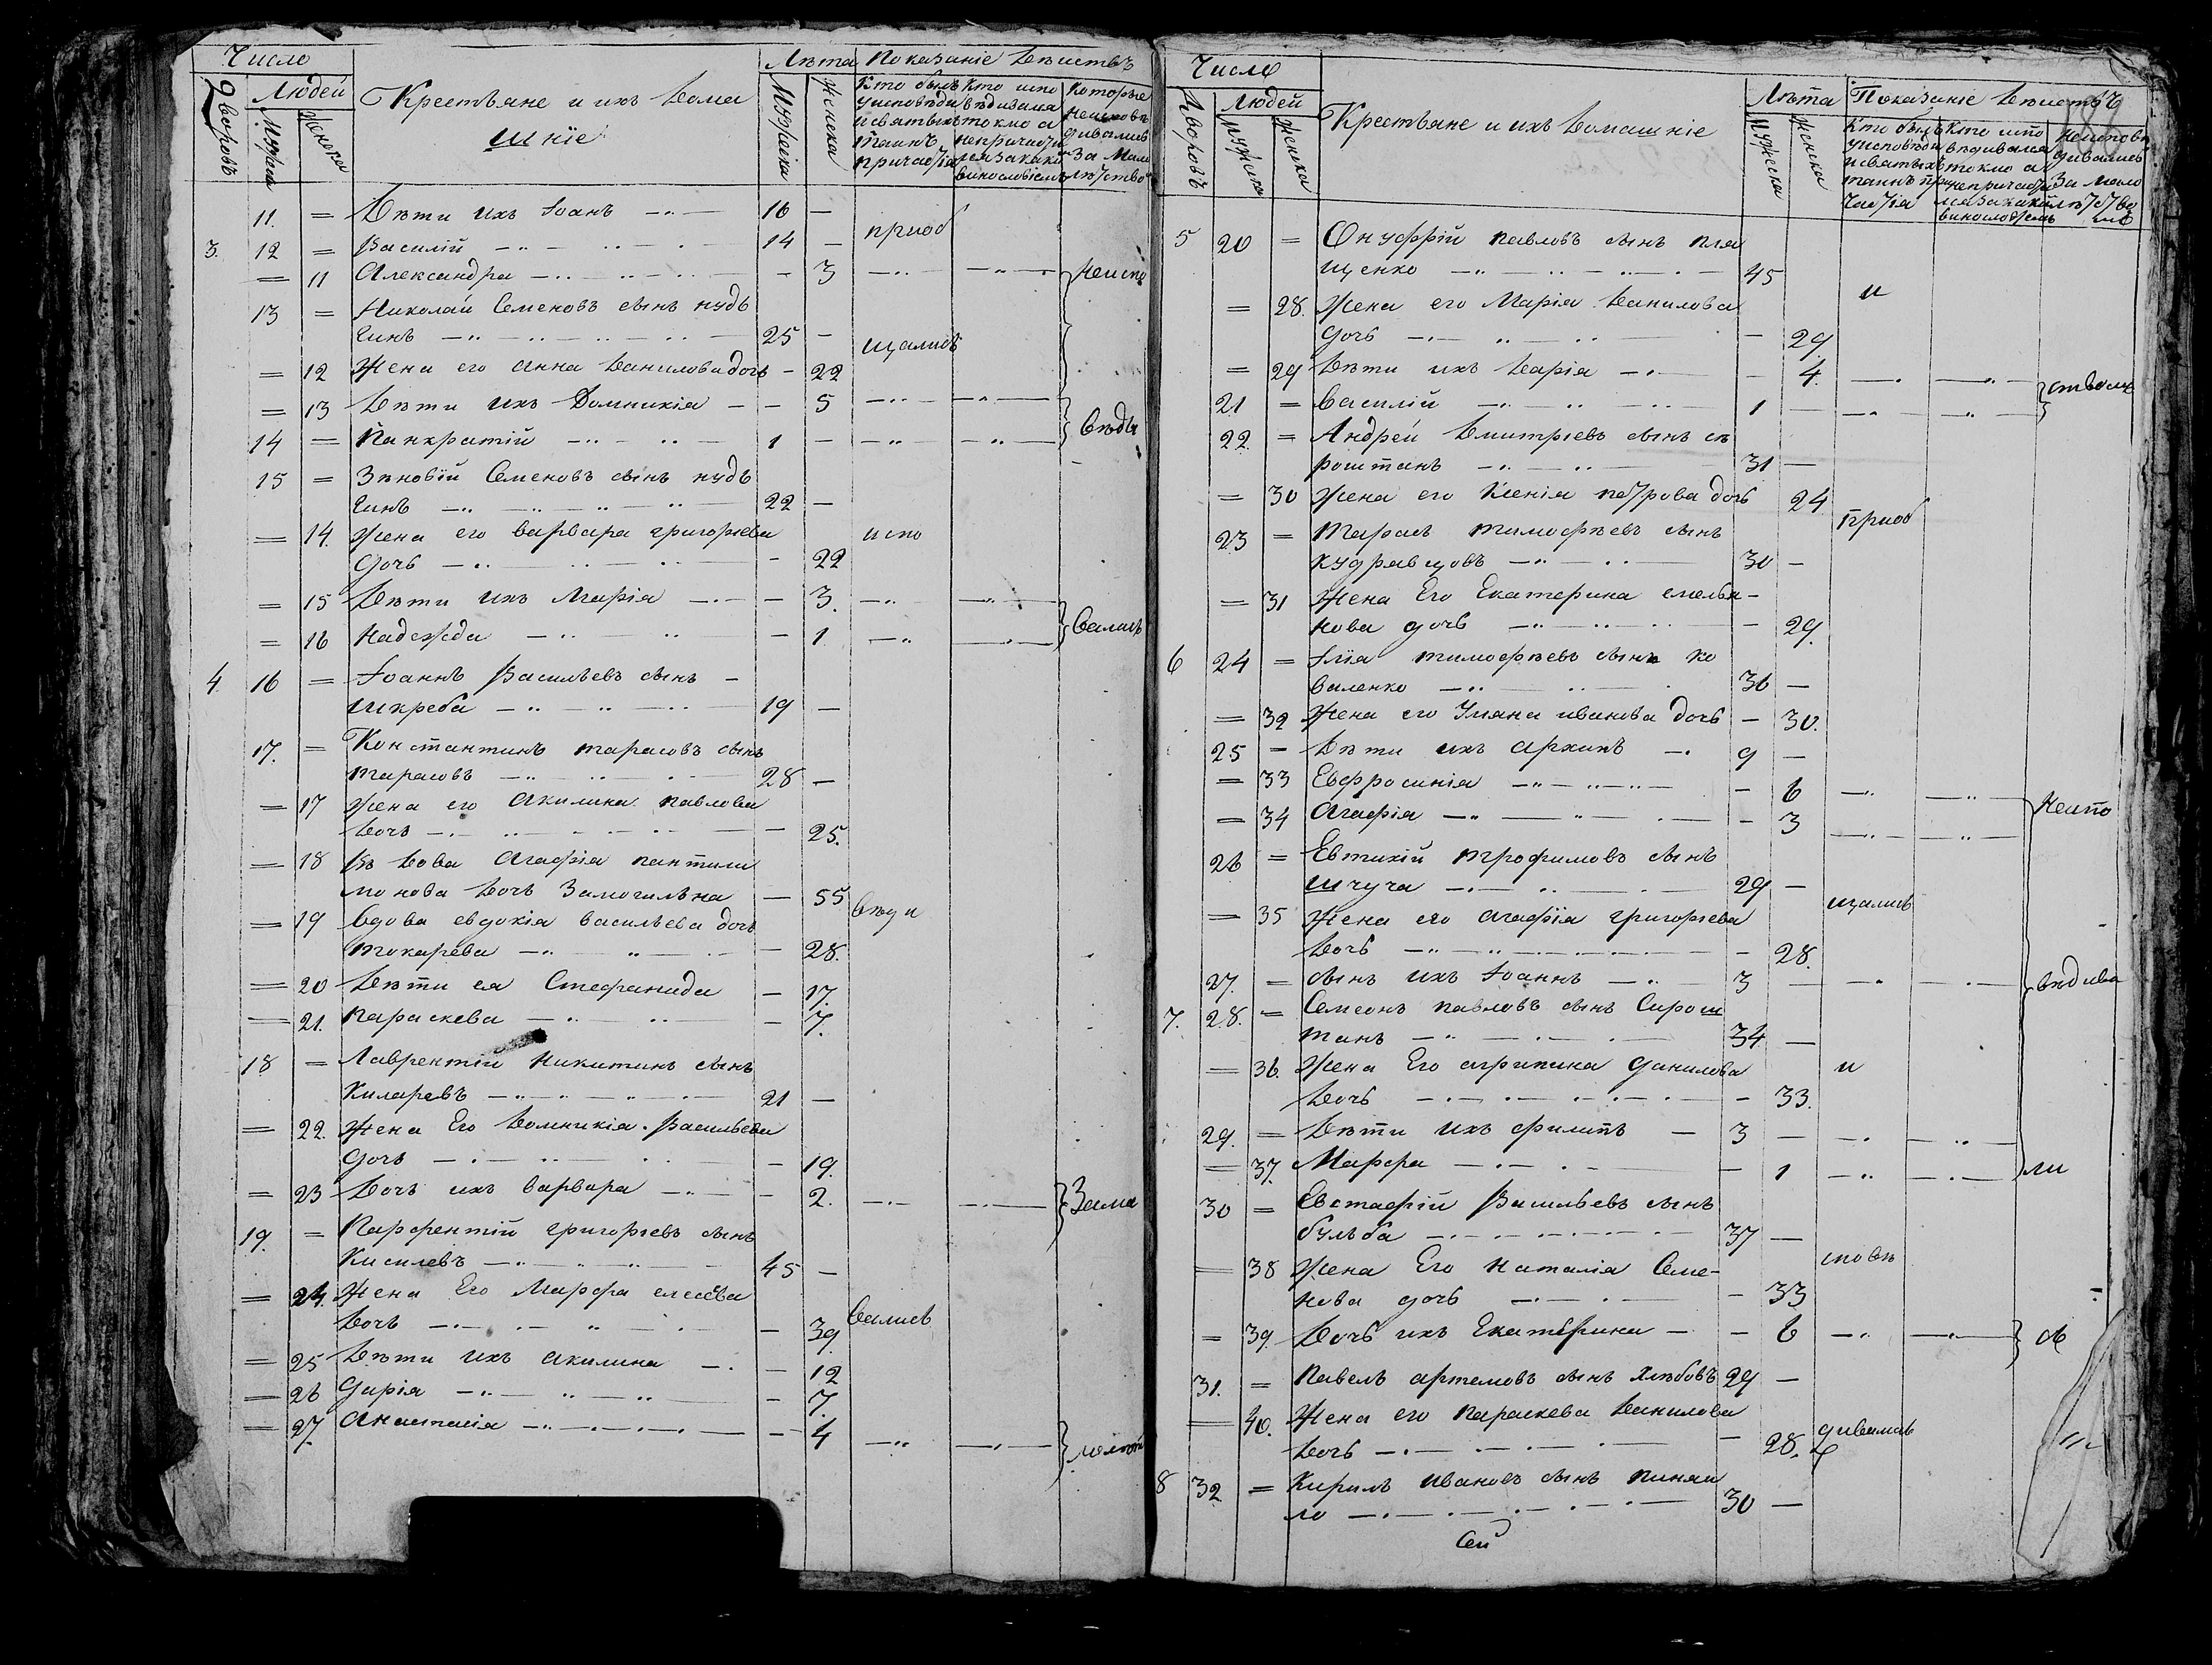 Число
Людей
Крестьяне и ихъ дома
шніе
Лѣта
Показаніе дѣйствъ
дворовъ
Мужеска
Женска
Мужеска
Женска
Кто былъ
Кто испо
Которые
у исповѣди
вѣдывался
неисповѣ
и святыхъ
токмо а
дывались
таинъ
непричаст
За мало
причастія
лѣтство
винословіемъ
11. = Дѣти ихъ Іоанъ 16 — приоб
3. 12 = Василій 14 —
= 11 Александра — 3 неиспо
13 = Николай Семеновъ сынъ нудь
гинъ 25 — щались
= 12 Жена его Анна Данилова дочь — 22
= 13 Дѣти ихъ Домникія — 5
14 = Панкратій 1 — вѣды
15 = Зѣновій Семеновъ сынъ нудь
гинъ 22 —
= 14. Жена его варвара григорьева испо
дочь — 22
= 15 Дѣти ихъ Марія — 3.
= 16 Надежда — 1 вались
4. 16 = Іоаннъ Васильевъ сынъ
шкреба 19 —
17. = Константинъ тарасовъ сынъ
тарасовъ 28 —
= 17 Жена его Акилина павлова
дочь — 25.
= 18 Вдова Агафія пантили
монова дочь Замогильна — 55 вѣди
= 19 вдова евдокія васильева дочь
токарева — 28.
= 20 Дѣти ея Стефанида — 17.
= 21. параскева — 7.
18 = Лаврентій никитинъ сынъ
Киларевъ 21 —
= 22. Жена Его Домникія Васильева
дочь — 19.
= 23 Дочь ихъ варвара — 2. За ма
19. = Парфентій григорьевъ сынъ
Киселевъ 45 —
= 24. Жена Его Марфа елесѣева
дочь — 39. вались
= 25 Дѣти ихъ акилина — 12
= 26 дарія — 7.
= 27 анастасія — 4
Число
Людей
Крестьяне и ихъ домашніе
Лѣта
Показаніе дѣйствъ
Дворовъ
Мужеска
Женска
Мужеска
Женска
Кто былъ
Кто испо
неисповѣ
у исповѣди
вѣдывался
дывались
и святыхъ
токмо а
таинъ при
непричасти
За мало
частія
лѣтство
винословіемъ
мъ
5 20 = Онуфрій павловъ сынъ пла
щенко 45
= 28. Жена его Марія Данилова и
дочь — 29.
= 29 Дѣти ихъ дарія — 4. ствомъ
21 = василій 1 —
22. = Андрей Дмитріевъ сынъ си
роштанъ 31 —
= 30 Жена его Ксенія петрова дочь 24
23 = Тарасъ тимофѣевъ сынъ приоб
кудравцовъ 30 —
= 31 Жена Его Екатерина емелья-
нова дочь — 29.
6 24 = Ілія тимофѣевъ сынъ ко
валенко 36 —
= 32 Жена его Уляна иванова дочь — 30.
25 = Дѣти ихъ архипъ 9 —
= 33 Евфросинія — 6
= 34 Агафія — 3 неиспо
26 = Евтихій трофимовъ сынъ
шчуча 29 — щались
= 35 Жена его агафія григорьева
дочь — 28.
27. = сынъ ихъ Іоаннъ 3 — вѣдива
7. 28. = Семеонъ павловъ сынъ Сирош
танъ 34 —
= 36. Жена Его агрипина данилова и
дочь — 33.
29. = Дѣти ихъ филипъ 3 —
= 37. Марфа — 1 ли
30 = Евстафій Васильевъ сынъ
бульба 37 —
= 38 Жена Его наталія Семе- исповѣ
нова дочь — 33
= 39. Дочь ихъ Екатерина — 6 сь
31. = Павелъ артемовъ сынъ хлѣбовъ 29 —
= 40. Жена его параскева Данилова
дочь — 28. дивались
8 32 = Кирилъ ивановъ сынъ пинчи
ло 30 —
Сей